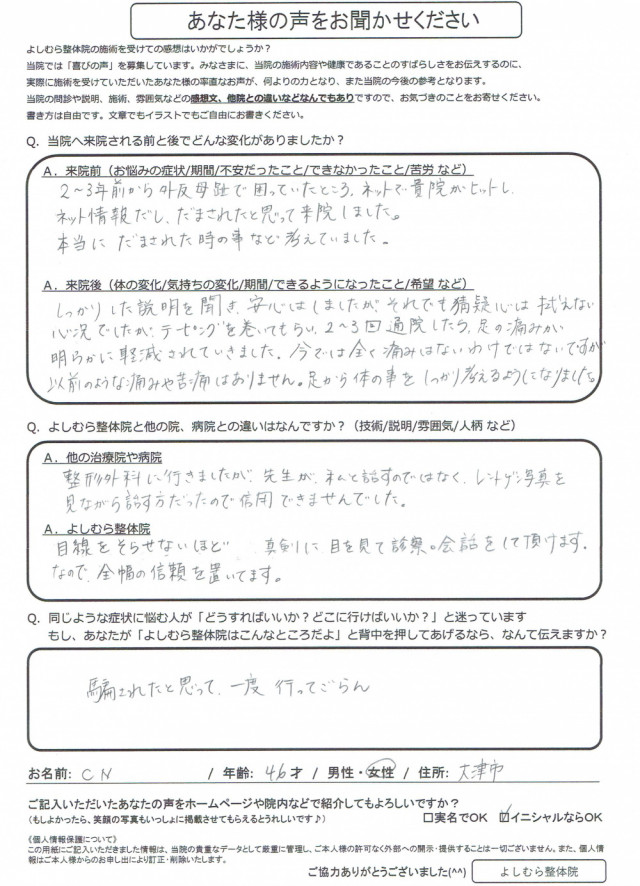 あなた様の声をお聞かせください
よしむら整体院の施術を受けての感想はいかがでしょうか？
当院では「喜びの声」を募集しています。みなさまに、当院の施術内容や健康であることのすばらしさをお伝えするのに、
実際に施術を受けていただいたあなた様の率直なお声が、何よりの力となり、また当院の今後の参考となります。
当院の問診や説明、施術、雰囲気などの感想文、他院との違いなどなんでもありですので、お気づきのことをお寄せください。
書き方は自由です。文章でもイラストでもご自由にお書きください。
Q．当院へ来院される前と後でどんな変化がありましたか？
A．来院前（お悩みの症状/期間/不安だったこと/できなかったこと/苦労 など）
2～3年前から外反母趾で困っていたところ、ネットで貴院がヒットし、
ネット情報だし、だまされたと思って来院しました。
本当に だまされた時の事など考えていました。
A．来院後（体の変化/気持ちの変化/期間/できるようになったこと/希望 など）
しっかりした説明を聞き、安心はしましたが、それでも猜疑心は拭えない
心況でしたが、テーピングを巻いてもらい、2～3回通院したら、足の痛みが
明らかに軽減されていきました。今では全く痛みはないわけではないですが
以前のような痛みや苦痛はありません。足から体の事をしっかり考えるようになりました。
Q．よしむら整体院と他の院、病院との違いはなんですか？（技術/説明/雰囲気/人柄 など）
A．他の治療院や病院
整形外科に行きましたが、先生が、私と話すのではなく、レントゲン写真を
見ながら話す方だったので信用できませんでした。
A．よしむら整体院
目線をそらせないほど 真剣に目を見て診察。会話をして頂けます。
なので、全幅の信頼を置いてます。
Q．同じような症状に悩む人が「どうすればいいか？どこに行けばいいか？」と迷っています
もし、あなたが「よしむら整体院はこんなところだよ」と背中を押してあげるなら、なんて伝えますか？
騙されたと思って、一度 行ってごらん
お名前: CN / 年齢: 46才 / 男性・女性 / 住所: 大津市
ご記入いただいたあなたの声をホームページや院内などで紹介してもよろしいですか？
（もしよかったら、笑顔の写真もいっしょに掲載させてもらえるとうれしいです♪） □実名でOK ☑イニシャルならOK
《個人情報保護について》
この用紙にご記入いただきました情報は、当院の貴重なデータとして厳重に管理し、ご本人様の許可なく外部への開示・提供することは一切ございません。また、個人情
報はご本人様からのお申し出により訂正・削除いたします。
ご協力ありがとうございました(^^) よしむら整体院